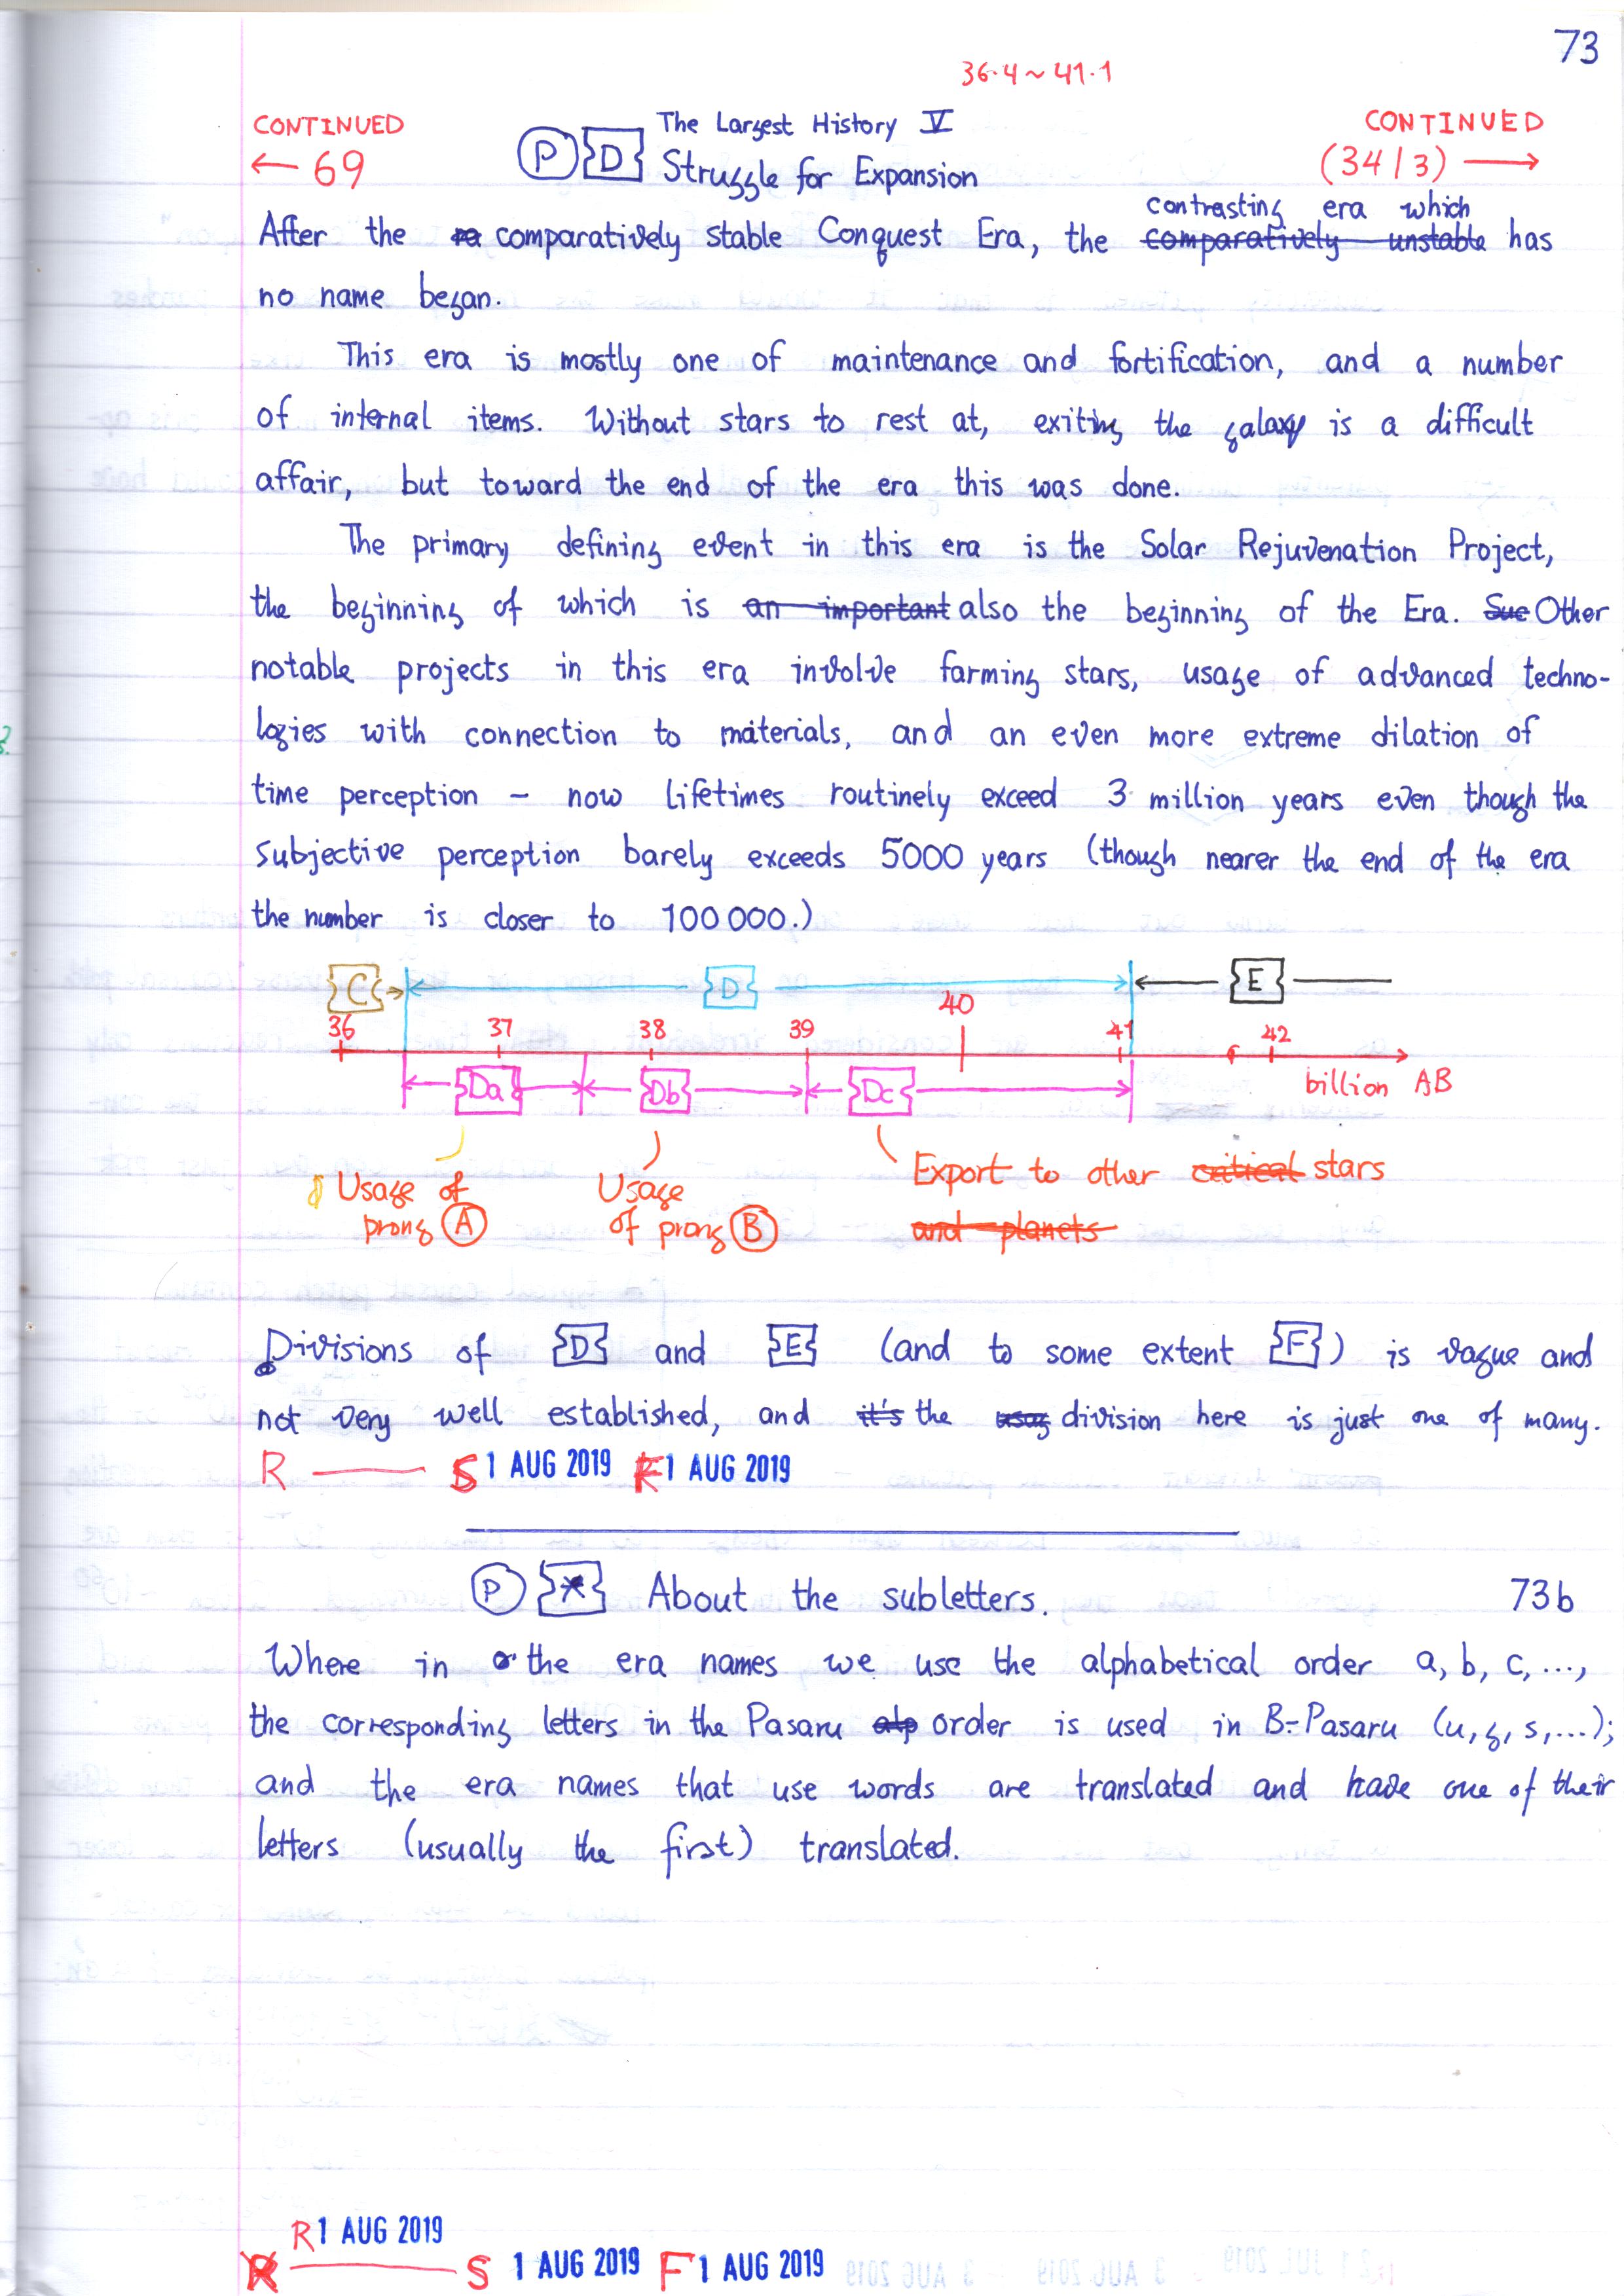 73
36.4 ~ 41.1
CONTINUED
← 69
CONTINUED
(34/3) →
P D The Largest History V
Struggle for Expansion
contrasting era which
After the comparatively stable Conquest Era, the comparatively unstable has
no name began.
This era is mostly one of maintenance and fortification, and a number
of internal items. Without stars to rest at, exiting the galaxy is a difficult
affair, but toward the end of the era this was done.
The primary defining event in this era is the Solar Rejuvenation Project,
the beginning of which is an important also the beginning of the Era. Suc Other
notable projects in this era involve farming stars, usage of advanced techno-
logies with connection to materials, and an even more extreme dilation of
time perception – now lifetimes routinely exceed 3 million years even though the
subjective perception barely exceeds 5000 years (though nearer the end of the era
the number is closer to 100 000.)
C D E
36 37 38 39 40 41 42
Da Db Dc billion AB
Usage of
prong A
Usage
of prong B
Export to other critical stars
and planets
Divisions of D and E (and to some extent F) is vague and
not very well established, and it's the usag division here is just one of many.
R S 1 AUG 2019 F 1 AUG 2019
P * About the subletters. 73b
Where in the era names we use the alphabetical order a, b, c, ...,
the corresponding letters in the Pasaru alp order is used in B-Pasaru (u, g, s, ...);
and the era names that use words are translated and have one of their
letters (usually the first) translated.
R 1 AUG 2019
R S 1 AUG 2019 F 1 AUG 2019